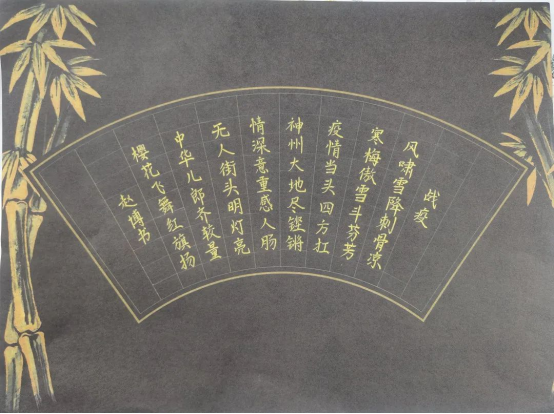 战疫
风啸雪降刺骨凉
寒梅傲雪斗芬芳
疫情当头四方扛
神州大地尽铿锵
情深意重感人肠
无人街头明灯亮
中华儿郎齐较量
樱花飞舞红旗扬
赵博书